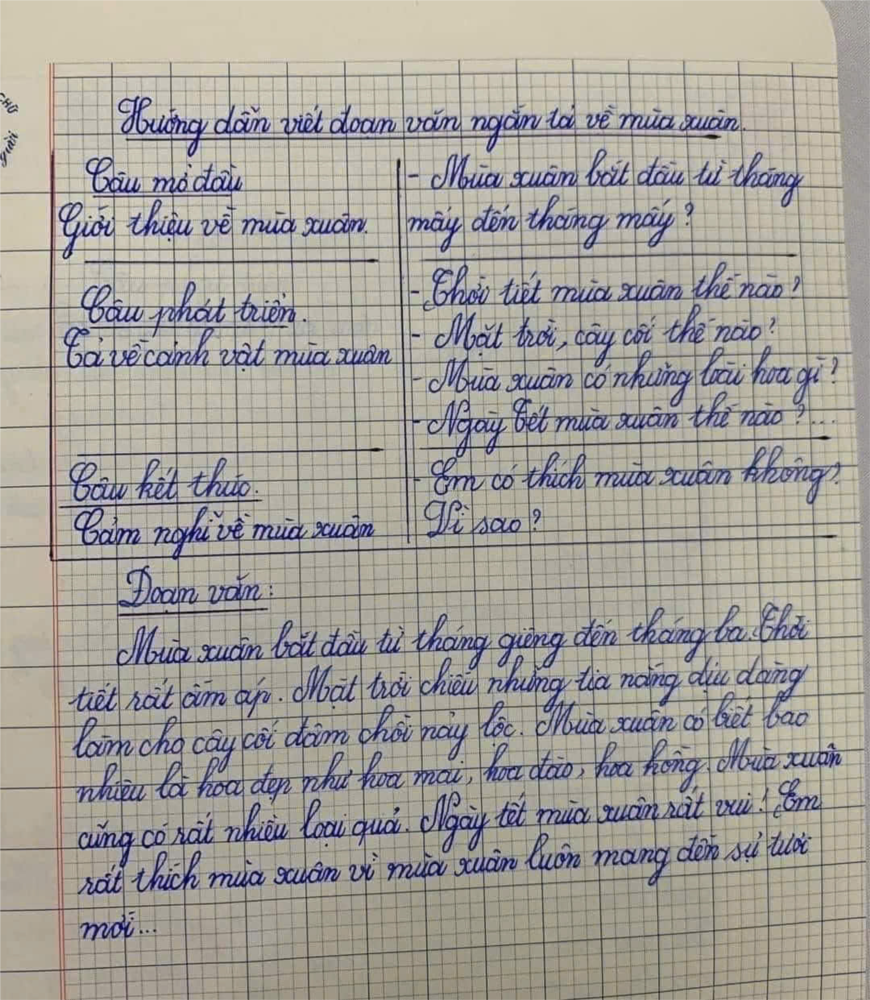 CHỮ
Hướng dẫn viết đoạn văn ngắn tả về mùa xuân.
Câu mở đầu
Giới thiệu về mùa xuân.
- Mùa xuân bắt đầu từ tháng
mấy đến tháng mấy?
Câu phát triển.
Tả về cảnh vật mùa xuân
- Thời tiết mùa xuân thế nào?
- Mặt trời, cây cối thế nào?
- Mùa xuân có những loài hoa gì?
- Ngày Tết mùa xuân thế nào?...
Câu kết thúc.
Cảm nghĩ về mùa xuân
- Em có thích mùa xuân không?
Vì sao?
Đoạn văn:
Mùa xuân bắt đầu từ tháng giêng đến tháng ba. Thời
tiết rất ấm áp. Mặt trời chiếu những tia nắng dịu dàng
làm cho cây cối đâm chồi nảy lộc. Mùa xuân có biết bao
nhiêu là hoa đẹp như hoa mai, hoa đào, hoa hồng. Mùa xuân
cũng có rất nhiều loại quả. Ngày tết mùa xuân rất vui! Em
rất thích mùa xuân vì mùa xuân luôn mang đến sự tươi
mới...